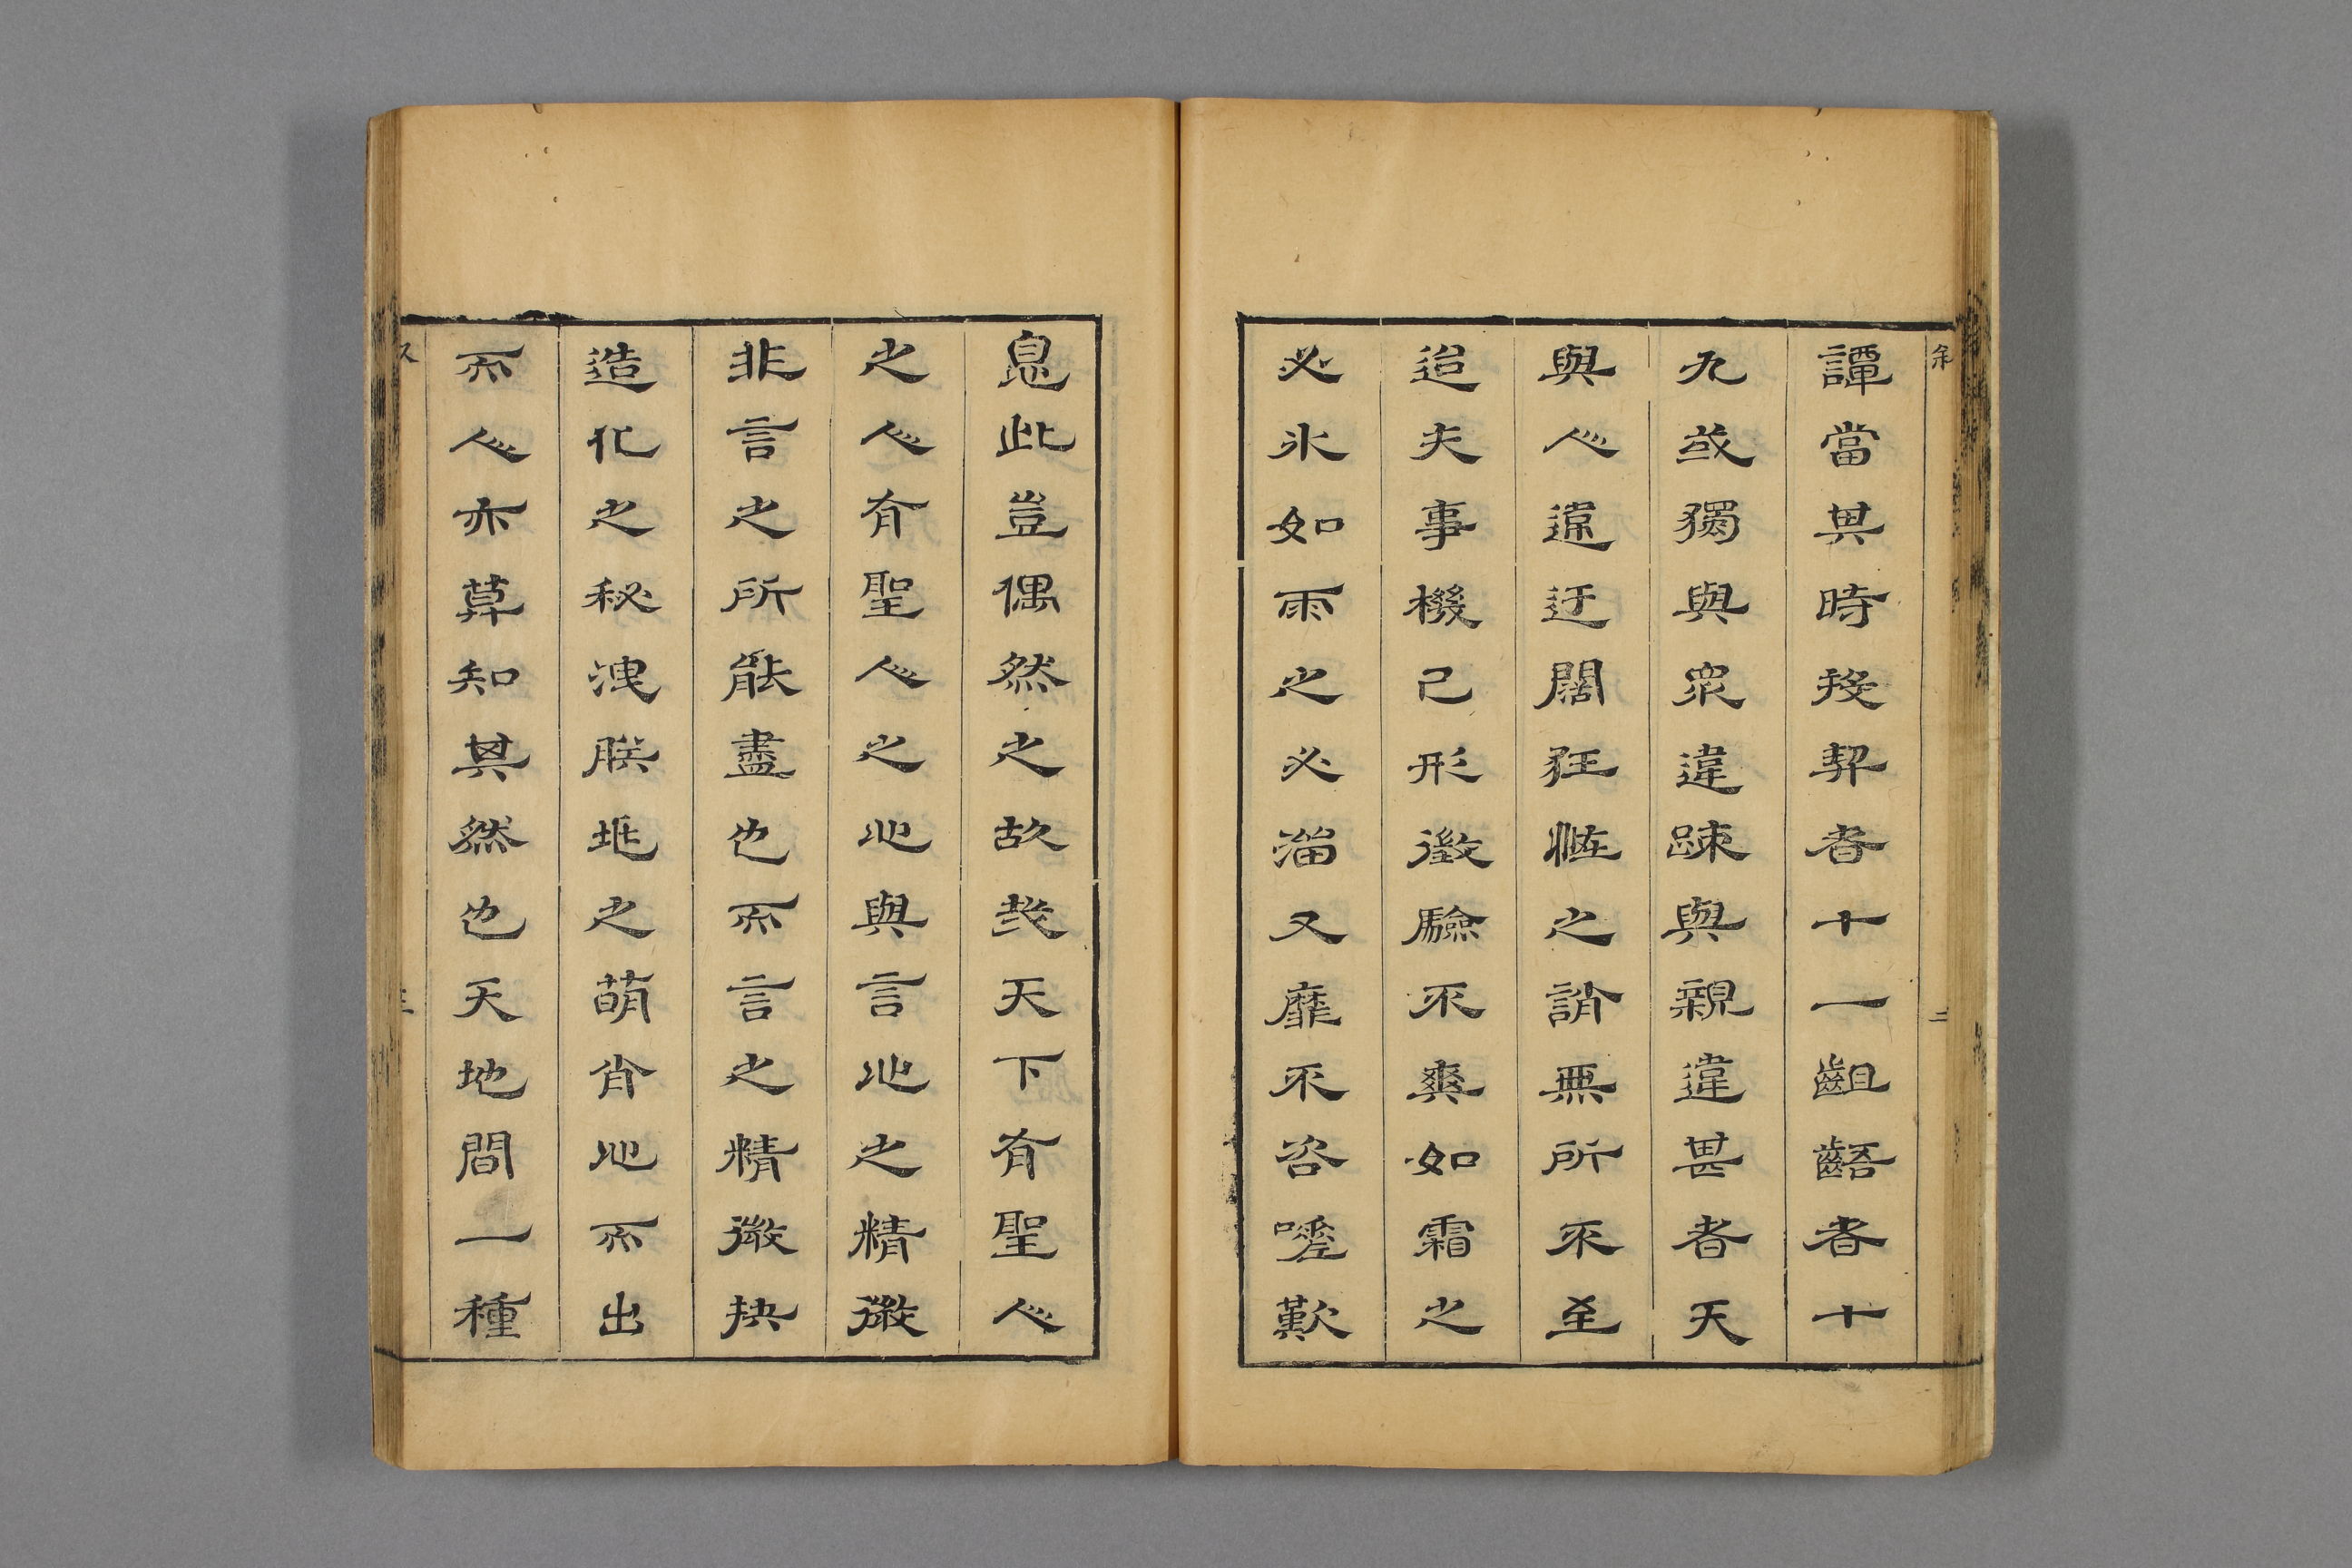 譚當其時投契者十一齟齬者十
九或獨與衆違疎與親違甚者天
與人違迂闊狂怪之誚無所不至
迨夫事機已形徵驗不爽如霜之
必氷如雨之必溜又靡不咨嗟歎
息此豈偶然之故哉天下有聖人
之人有聖人之心與言心之精微
非言之所能盡也而言之精微抉
造化之秘洩朕兆之萌肖心而出
而人亦莫知其然也天地間一種